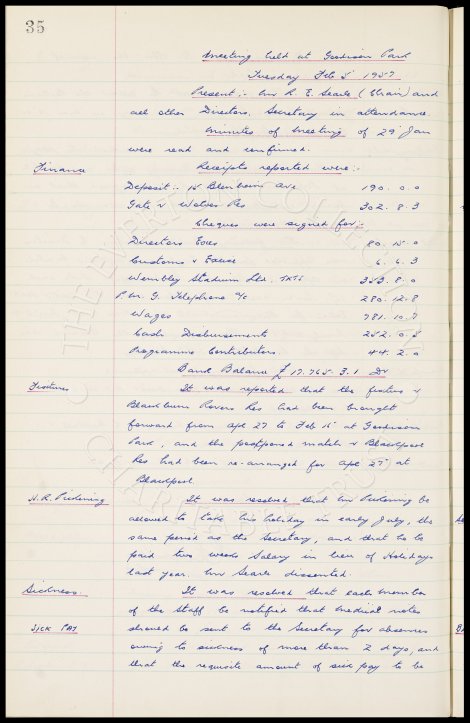 35
Meeting held at Goodison Park
Tuesday Feb 5 1957
Present :- Mr R. E. Searle (Chair) and
all other Directors, Secretary in attendance
Minutes of meeting of 29 Jan
were read and confirmed.
Finance
Receipts reported were :-
Deposit :- 15 Blenheim Ave 190. 0. 0
Gate v Wolves Res 302. 8. 3
Cheques were signed for :-
Directors Exes 80. 15. 0
Customs & Excise 6. 6. 3
Wembley Stadium Ltd. TKTS 353. 8. 0
P.M.G. Telephone a/c 280. 12. 8
Wages 781. 10. 7
Cash Disbursements 252. 0. 3
Programme Contributors 44. 2. 0
Bank Balance £ 17.765. 3. 1 Dr
Fixtures
It was reported that the fixture v
Blackburn Rovers Res had been brought
forward from Apl 27 to Feb 15 at Goodison
Park, and the postponed match v Blackpool
Res had been re-arranged for Apl 27 at
Blackpool.
H. R. Pickering
It was resolved that Mr Pickering be
allowed to take his holiday in early July, the
same period as the Secretary, and that he be
paid two weeks salary in lieu of Holidays
last year. Mr Searle dissented.
Sickness.
It was resolved that each member
of the Staff be notified that medical notes
SICK PAY
should be sent to the Secretary for absences
owing to sickness of more than 2 days, and
that the requisite amount of sick pay to be
THE EVERTON COLLECTION
CHARITABLE TRUST